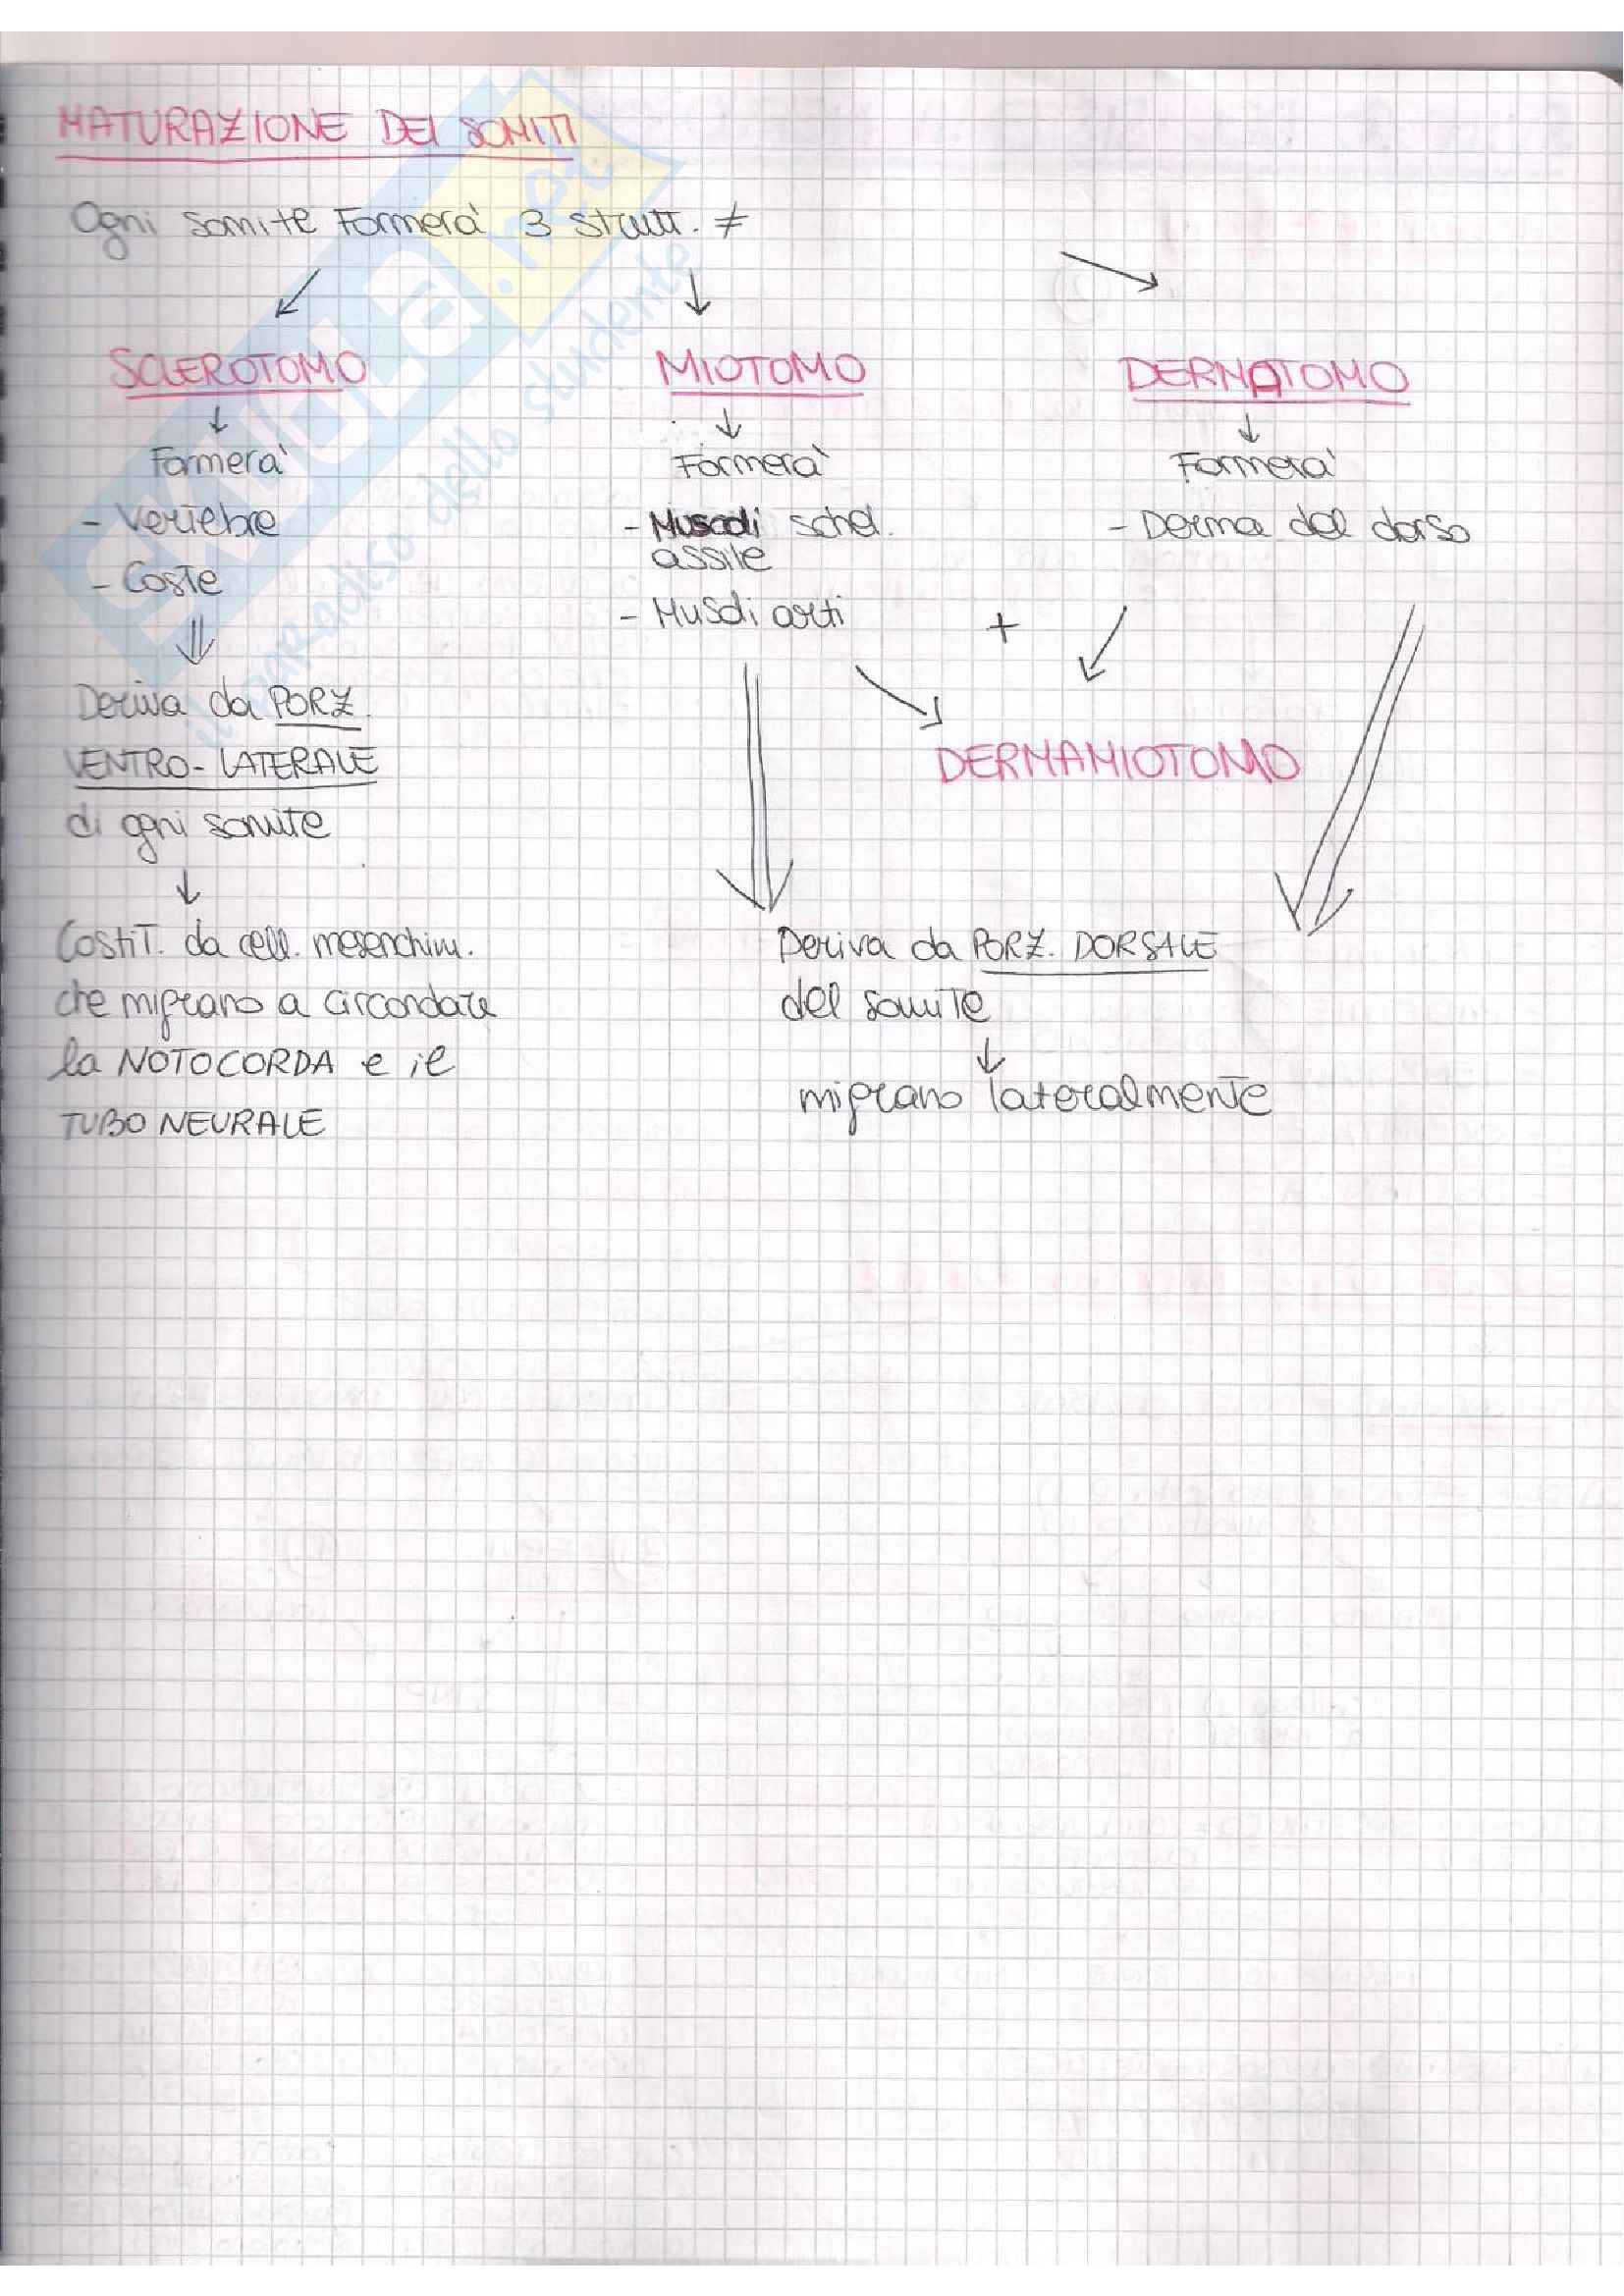 MATURAZIONE DEI SOMITI
Ogni somite Formerà 3 strutt. ≠
SCLEROTOMO
MIOTOMO
DERMATOMO
Formerà
Formerà
Formerà
- Vertebre
- Coste
- Muscoli schel.
assile
- Muscli arti
- Derma del dorso
+
DERMAMIOTOMO
Deriva da PORZ.
VENTRO-LATERALE
di ogni somite
Costit. da cell. mesenchim.
che migrano a circondare
la NOTOCORDA e il
TUBO NEURALE
Deriva da PORZ. DORSALE
del somite
migrano lateralmente
SKUOLA.net
il paradiso dello studente